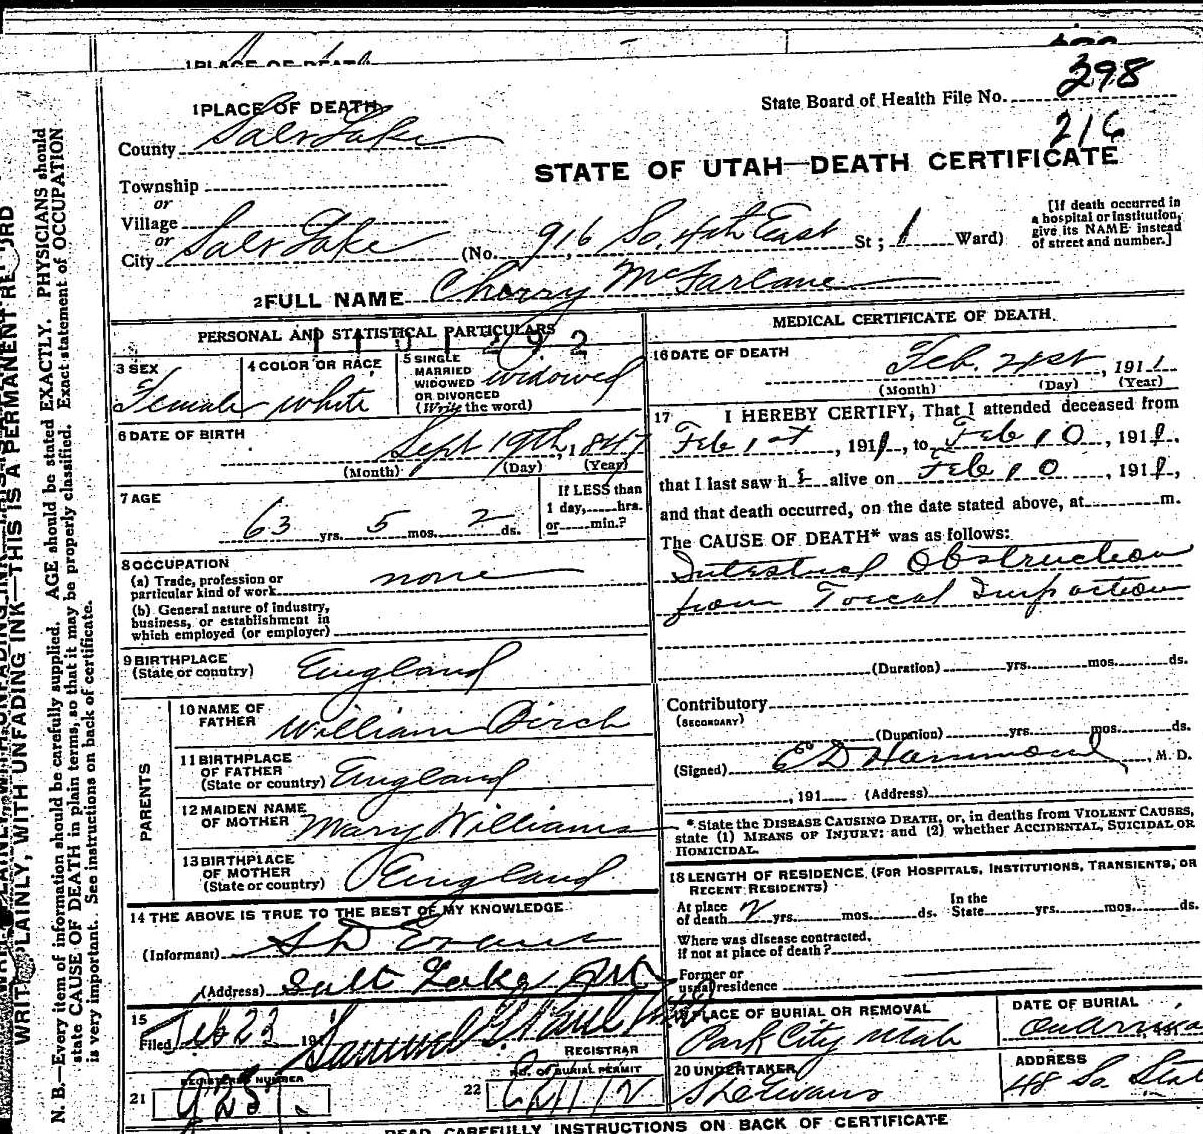 1 PLACE OF DEATH
State Board of Health File No. 398
216
County Salt Lake
STATE OF UTAH—DEATH CERTIFICATE
Township
or
Village
or
City Salt Lake (No. 916 So. 4th East St; 1 Ward)
[If death occurred in
a hospital or institution,
give its NAME instead
of street and number.]
2 FULL NAME Cherry McFarlane
PERSONAL AND STATISTICAL PARTICULARS
3 SEX
Female
4 COLOR OR RACE
White
5 SINGLE
MARRIED
WIDOWED
OR DIVORCED
(Write the word)
Widowed
6 DATE OF BIRTH
Sept 19th, 1847
(Month) (Day) (Year)
7 AGE
63 yrs. 5 mos. 2 ds.
If LESS than
1 day, hrs.
or min.?
8 OCCUPATION
(a) Trade, profession or
particular kind of work none
(b) General nature of industry,
business, or establishment in
which employed (or employer)
9 BIRTHPLACE
(State or country) England
PARENTS
10 NAME OF
FATHER William Birch
11 BIRTHPLACE
OF FATHER
(State or country) England
12 MAIDEN NAME
OF MOTHER Mary Williams
13 BIRTHPLACE
OF MOTHER
(State or country) England
14 THE ABOVE IS TRUE TO THE BEST OF MY KNOWLEDGE
(Informant) S D Evans
(Address) Salt Lake
15
Filed Feb 23 191 Samuel G. Paul
REGISTRAR
21 REGISTERED NUMBER
22 NO. OF BURIAL PERMIT
MEDICAL CERTIFICATE OF DEATH.
16 DATE OF DEATH
Feb. 21st, 1911
(Month) (Day) (Year)
17 I HEREBY CERTIFY, That I attended deceased from
Feb 1st, 1911, to Feb 10, 1911,
that I last saw h alive on Feb 10, 1911,
and that death occurred, on the date stated above, at m.
The CAUSE OF DEATH* was as follows:
Intestinal Obstruction
from Foecal Impaction
(Duration) yrs. mos. ds.
Contributory
(SECONDARY)
(Duration) yrs. mos. ds.
(Signed) E D Hammond, M. D.
, 191 (Address)
* State the DISEASE CAUSING DEATH, or, in deaths from VIOLENT CAUSES,
state (1) MEANS OF INJURY; and (2) whether ACCIDENTAL, SUICIDAL OR
HOMICIDAL.
18 LENGTH OF RESIDENCE (FOR HOSPITALS, INSTITUTIONS, TRANSIENTS, OR
RECENT RESIDENTS)
At place
of death yrs. mos. ds.
In the
State yrs. mos. ds.
Where was disease contracted,
if not at place of death?
Former or
usual residence
19 PLACE OF BURIAL OR REMOVAL
Park City Utah
DATE OF BURIAL
20 UNDERTAKER
S D Evans
ADDRESS
48 So. State
READ CAREFULLY INSTRUCTIONS ON BACK OF CERTIFICATE
WRITE PLAINLY, WITH UNFADING INK—THIS IS A PERMANENT RECORD
N. B.—Every item of information should be carefully supplied. AGE should be stated EXACTLY. PHYSICIANS should
state CAUSE OF DEATH in plain terms, so that it may be properly classified. Exact statement of OCCUPATION
is very important. See instructions on back of certificate.